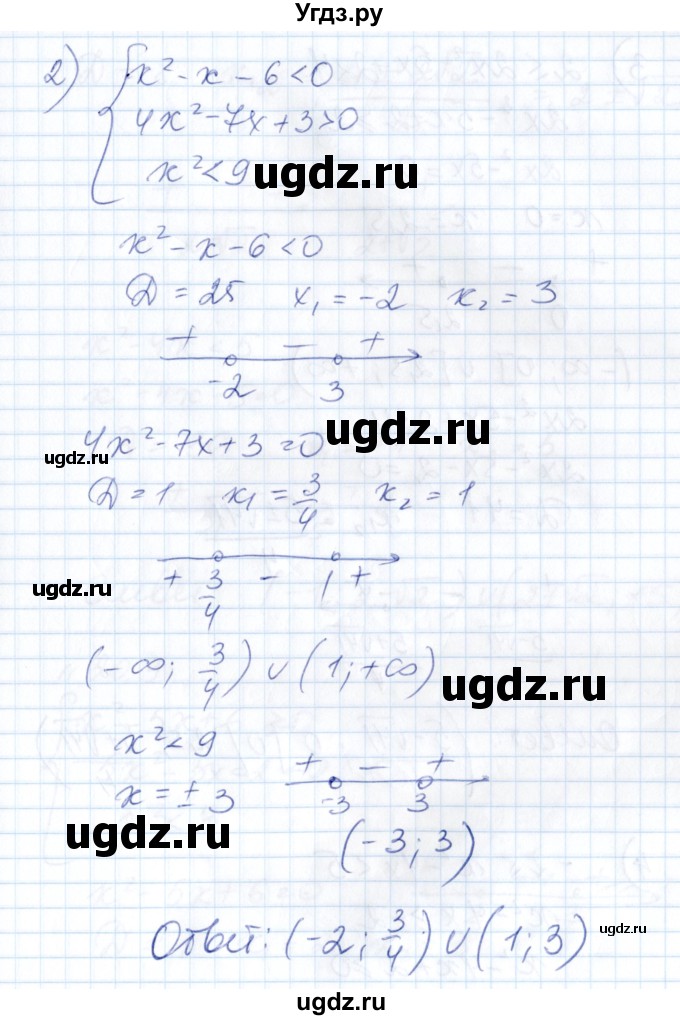 Угдз.ру
2) { x² - x - 6 < 0
4x² - 7x + 3 > 0
x² < 9
ugdz.ru
x² - x - 6 < 0
D = 25 x₁ = -2 x₂ = 3
+ - +
-2 3
ugdz.ru
4x² - 7x + 3 = 0
ugdz.ru
D = 1 x₁ = 3/4 x₂ = 1
+ 3/4 - 1 +
ugdz.ru
ugdz.ru
(-∞; 3/4) ∪ (1; +∞)
ugdz.ru
x² < 9
+ - +
x = ± 3
-3 3
ugdz.ru
(-3; 3)
Ответ: (-2; 3/4) ∪ (1; 3)
ugdz.ru
ugdz.ru